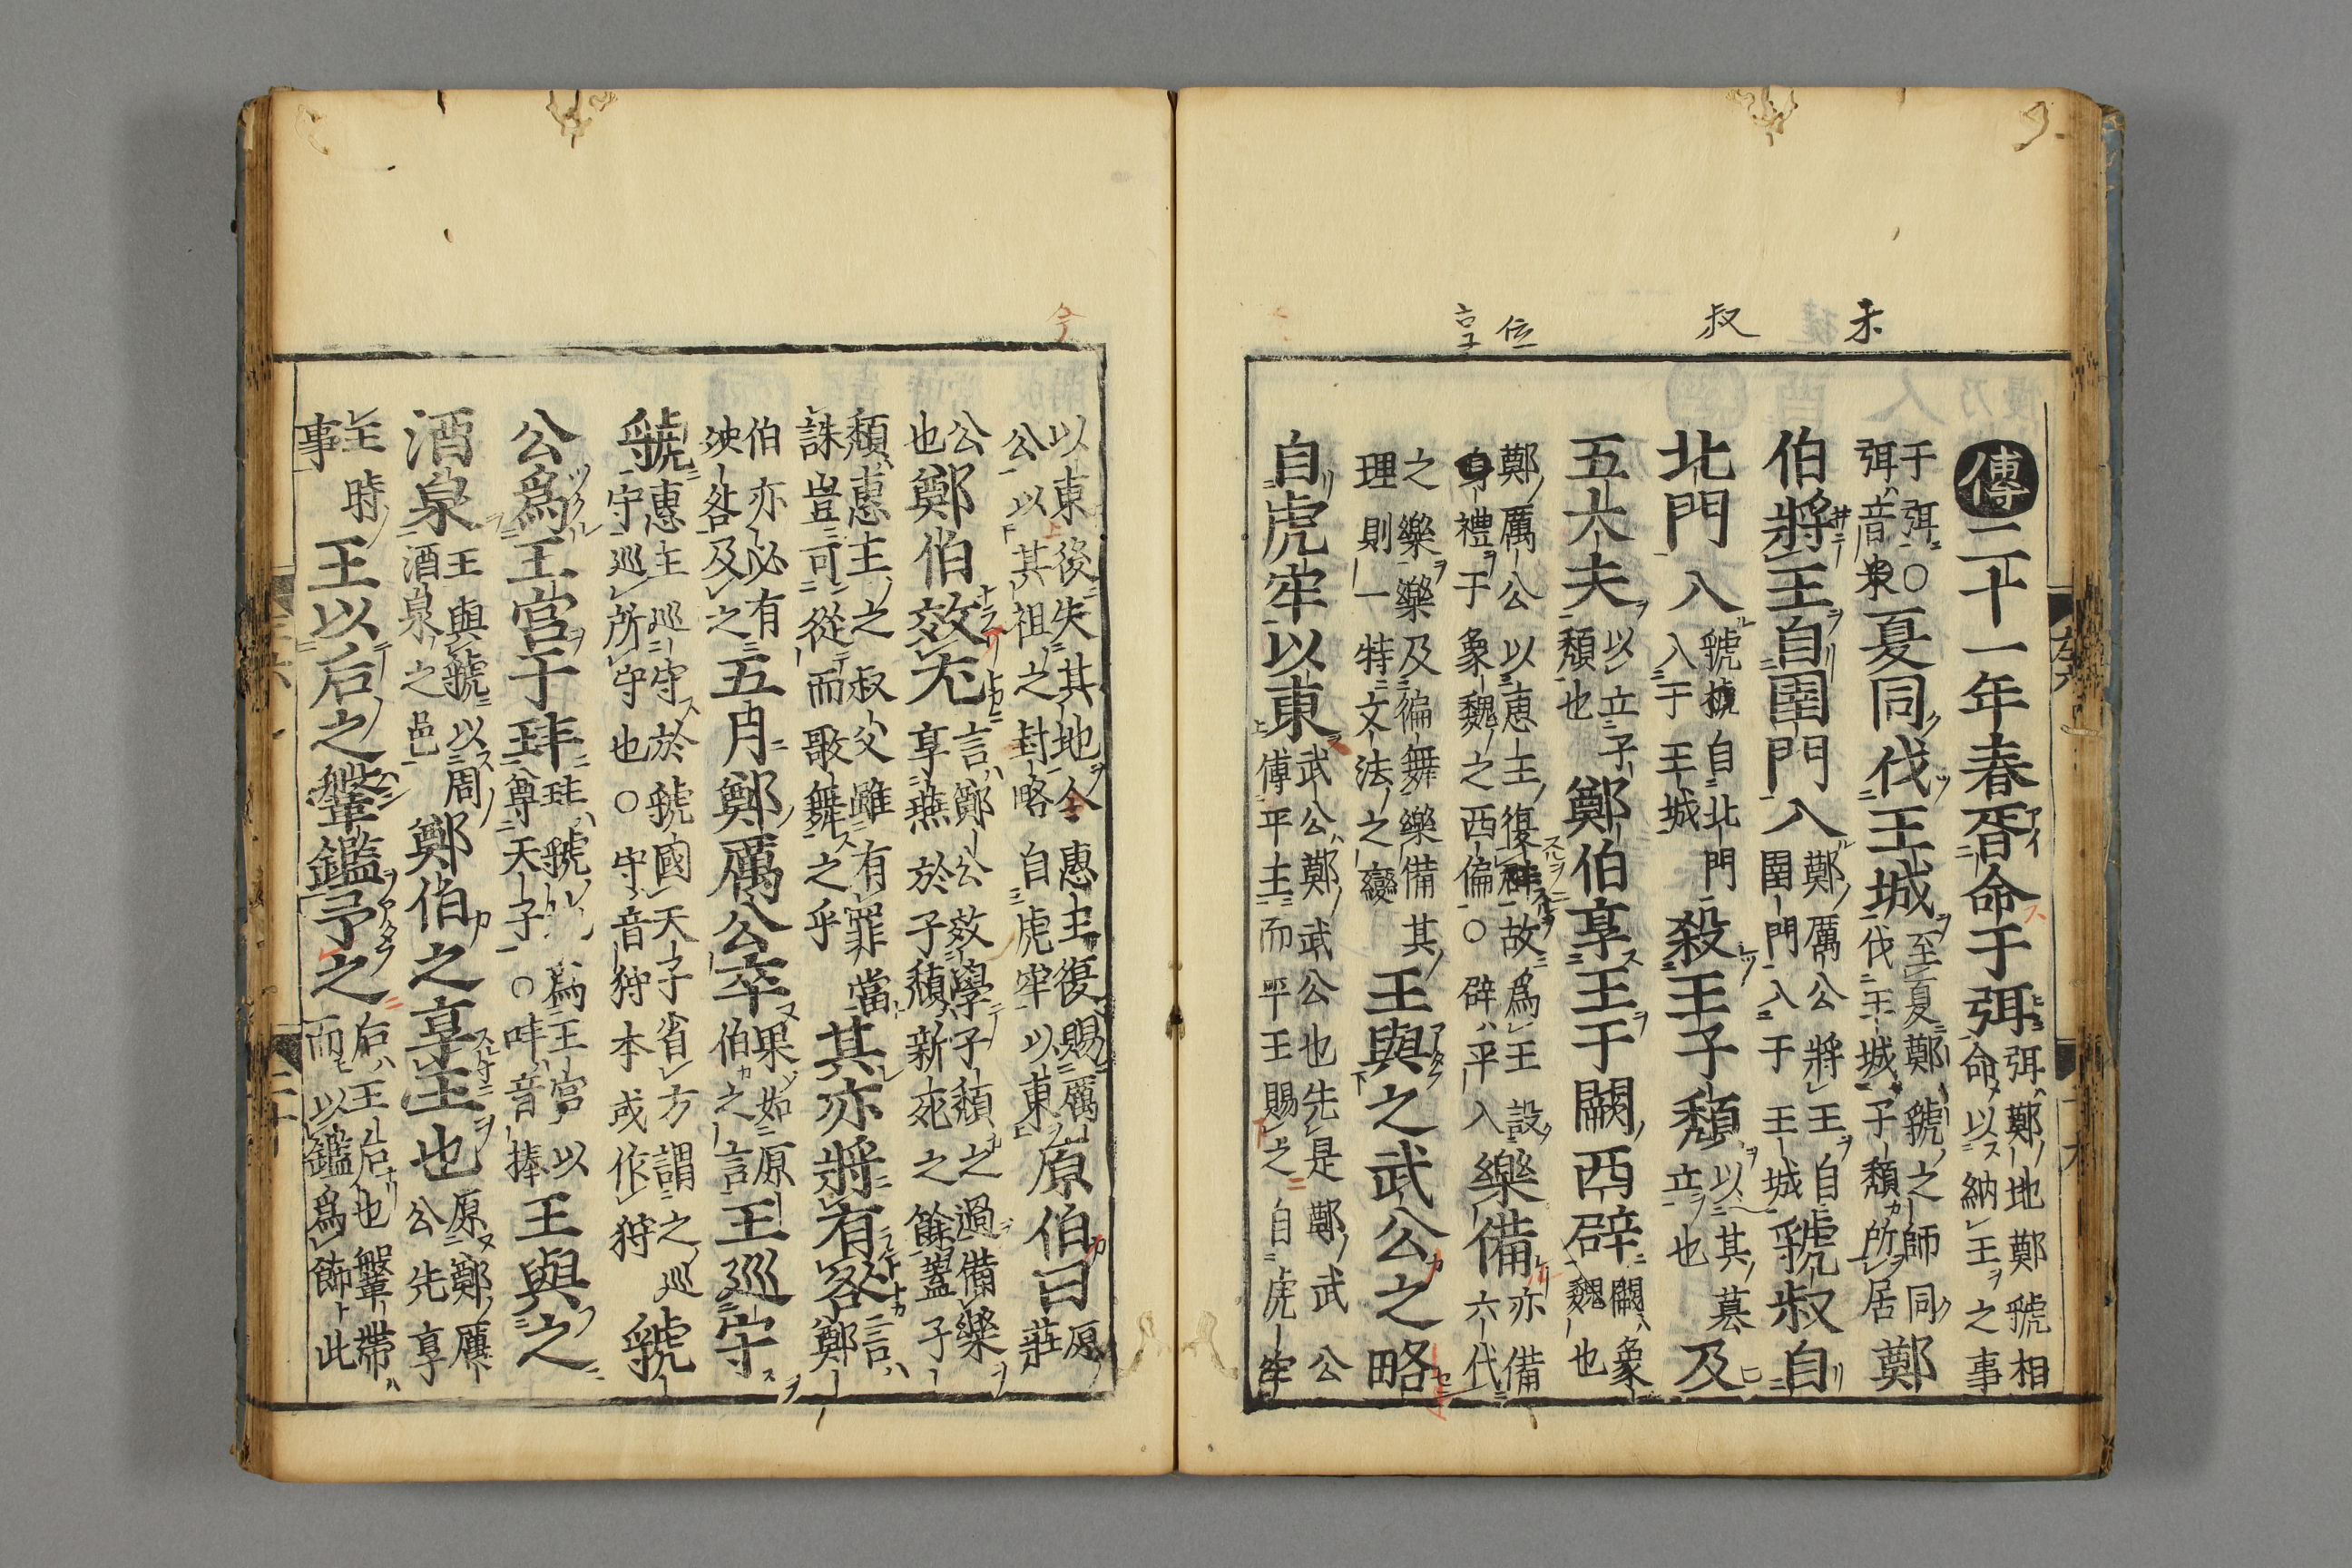 傳二十一年春胥命于弭弭鄭地鄭虢相命以納王之事
于弭○弭音夏同伐王城至夏鄭虢之師同伐王城子頹所居鄭
伯將王自圉門入鄭厲公將王自圉門入于王城虢叔自
北門入虢自北門入于王城殺王子頹以其立也及
五大夫以立子頹也鄭伯享王于闕西辟闕象魏也
鄭厲公以惠王復故為王設禮于象魏之西偏○辟平入樂備亦備六代
之樂樂及徧舞樂備其理則一特文法之變王與之武公之略
自虎牢以東武公鄭武公也先是鄭武公傅平王而平王賜之自虎牢
以東後失其地今惠王復賜厲公以其祖之封略自虎牢以東原伯曰原莊
公也鄭伯效尤言鄭公效學子頹之過備樂享燕於子頹新死之餘蓋子
頹惠王之叔父雖有罪當誅豈可從而歌舞之乎其亦將有咎言鄭
伯亦必有殃咎及之五月鄭厲公卒果如原伯之言王巡守
虢惠王巡守於虢國天子省方謂之巡守巡所守也○守音狩本或作狩虢
公為王宮于玤玤虢為王宮以尊天子○玤音捧王與之
酒泉王與虢以周酒泉之邑鄭伯之享王也原鄭厲公先享
王時王以后之鞶鑑予之后王后也鞶帶而以鑑為飾此
事
未
叔
位
享
今